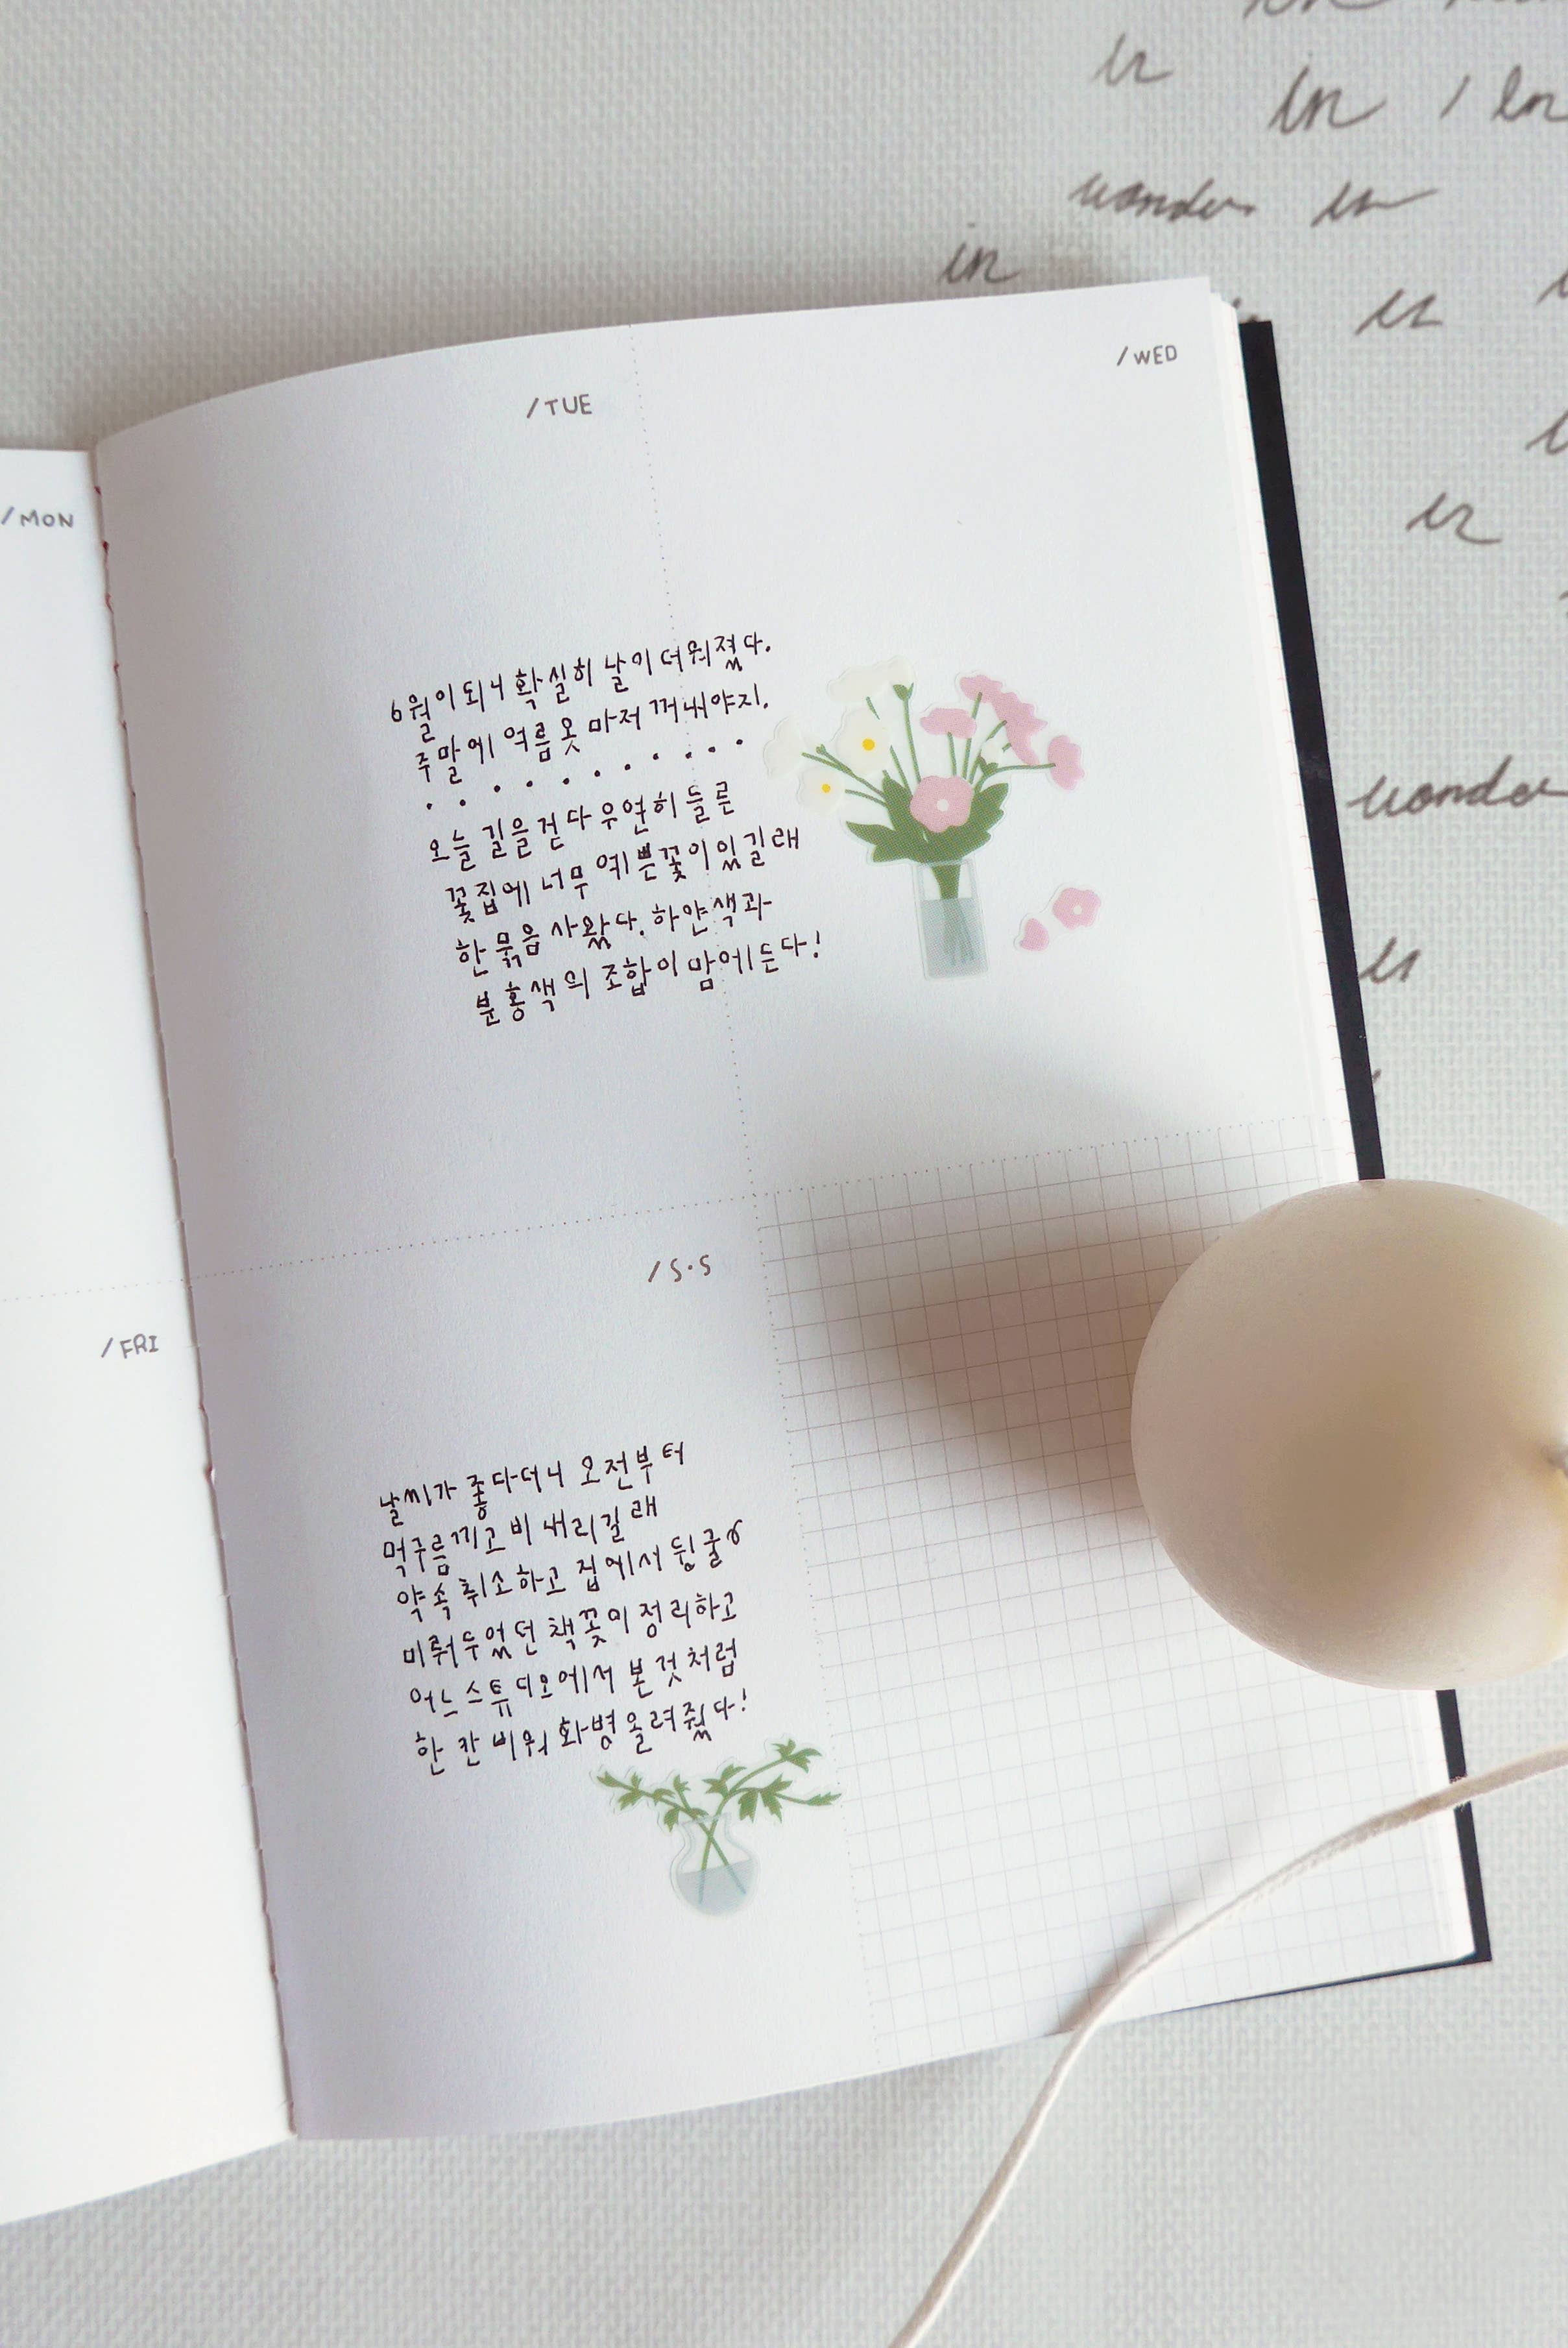 in
/ in
wander
in
/MON
/TUE
/WED
6월이 되니 확실히 날이 더워졌다.
주말에 여름옷 마저 꺼내야지.
. . . . . . . . . .
오늘 길을 걷다 우연히 들른
꽃집에 너무 예쁜 꽃이 있길래
한 묶음 사왔다. 하얀색과
분홍색의 조합이 맘에 든다!
/FRI
/S·S
날씨가 좋다더니 오전부터
먹구름 끼고 비 내리길래
약속 취소하고 집에서 뒹굴
미뤄두었던 책꽂이 정리하고
어느 스튜디오에서 본 것처럼
한 칸 비워 화병 올려줬다!